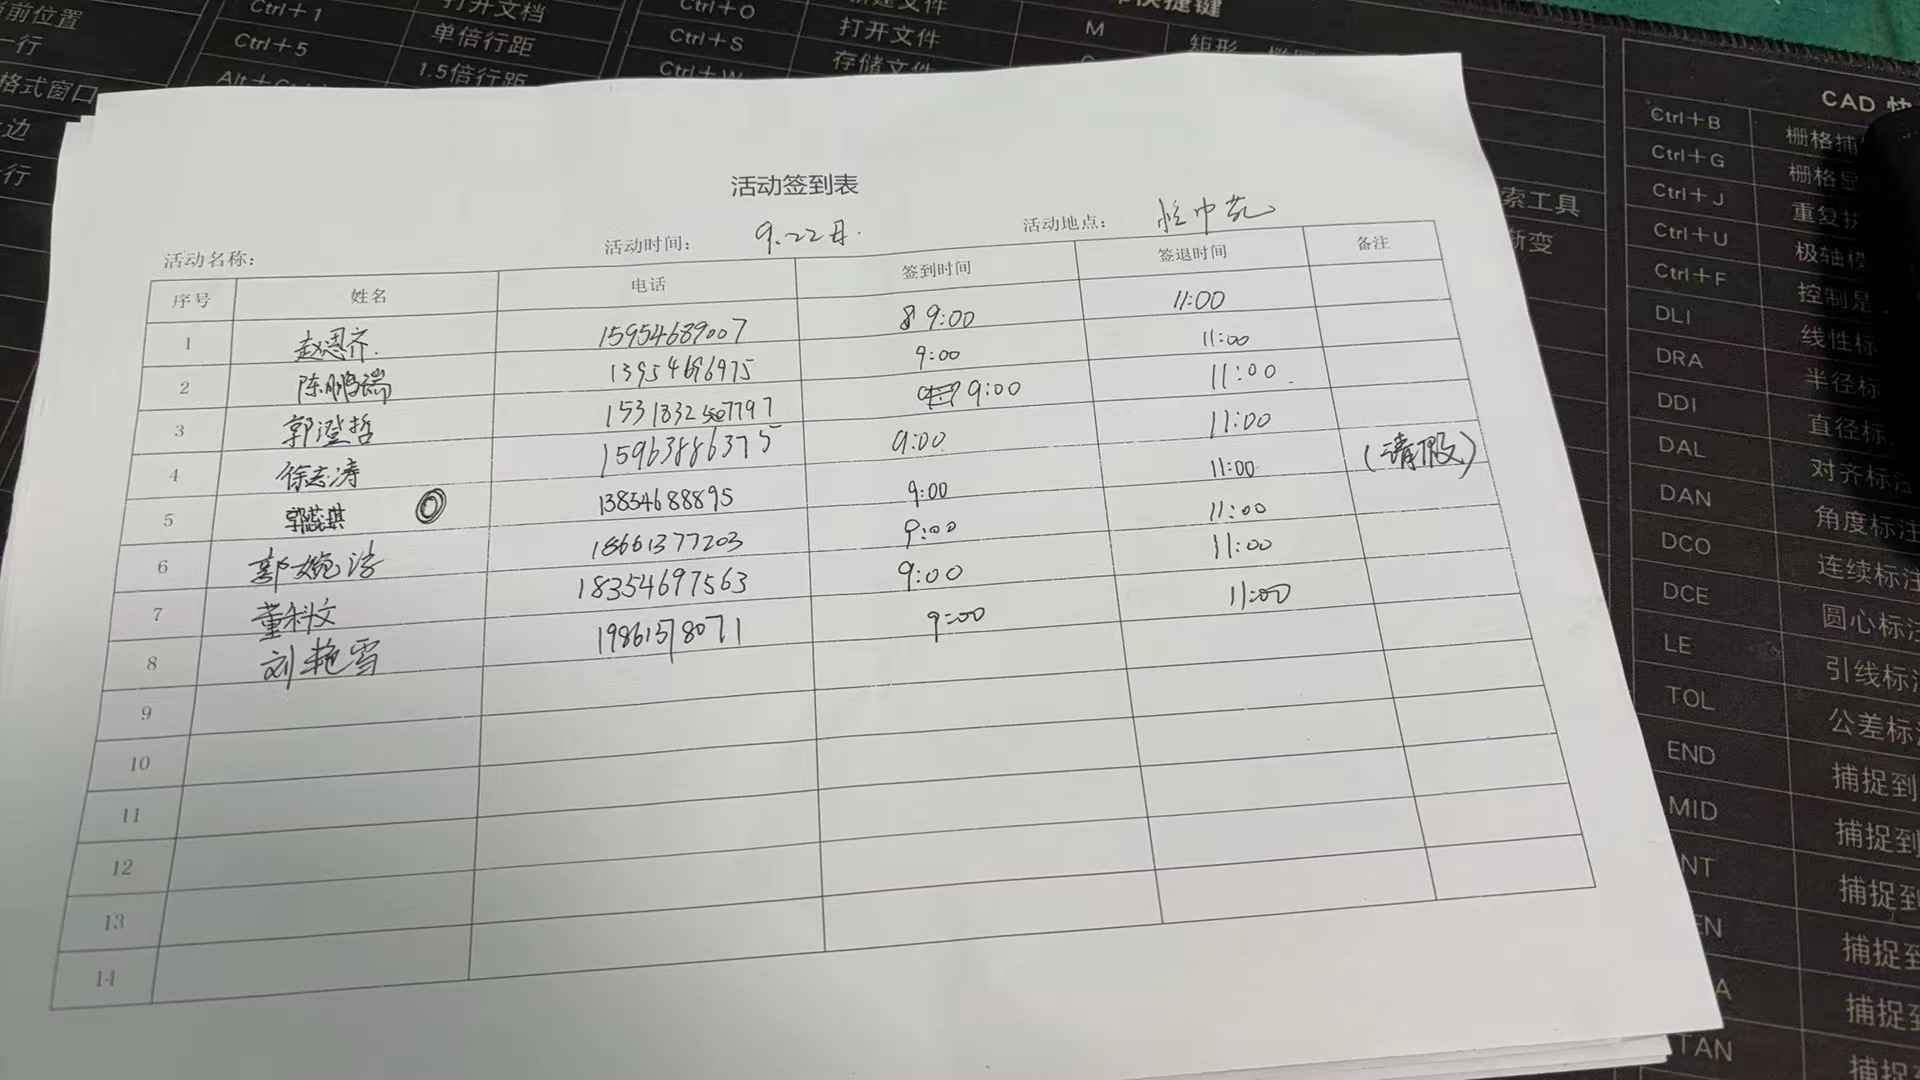 当前位置 Ctrl+1 打开文档 Ctrl+O 新建文件 快捷键
一行 Ctrl+5 单倍行距 Ctrl+S 打开文件 M 矩形
格式窗口 1.5倍行距 Ctrl+W 存储文件
边
行
CAD 快
Ctrl+B 栅格捕
Ctrl+G 栅格显
Ctrl+J 重复执
Ctrl+U 极轴模
Ctrl+F 控制是
DLI 线性标
DRA 半径标
DDI 直径标
DAL 对齐标注
DAN 角度标注
DCO 连续标注
DCE 圆心标注
LE 引线标注
TOL 公差标注
END 捕捉到
MID 捕捉到
NT 捕捉到
EN 捕捉到
A 捕捉到
TAN 捕捉到
索工具
渐变
活动签到表
活动名称: 活动时间: 9.22日. 活动地点:
序号 姓名 电话 签到时间 签退时间 备注
1 赵恩齐. 15954689007 9:00 11:00
2 陈鹏瑞 13954696975 9:00 11:00
3 郭澄哲 1531832 7797 9:00 11:00.
4 徐志涛 15963886375 9:00 11:00
5 郭蕊琪 13854688895 9:00 11:00 (请假)
6 郭婉 18661377203 9:00 11:00
7 董科文 18354697563 9:00 11:00
8 刘艳雪 19861578071 9:00 11:00
9
10
11
12
13
14